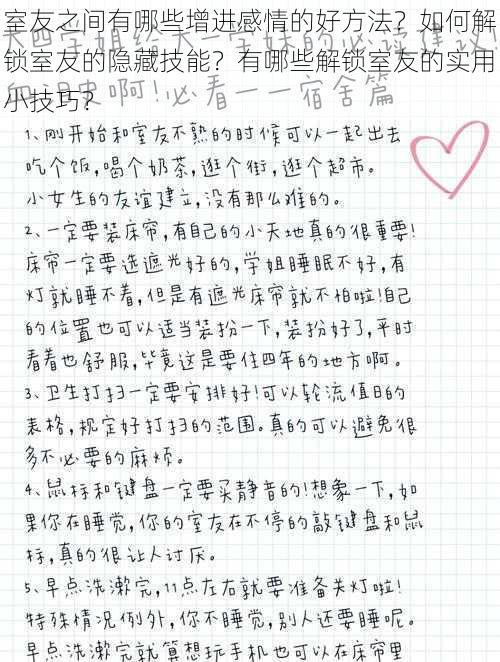 室友之间有哪些增进感情的好方法？如何解
锁室友的隐藏技能？有哪些解锁室友的实用
小技巧？
大四学姐给大一学妹的必读建议！
啊！必看——宿舍篇
1、刚开始和室友不熟的时候可以一起出去
吃个饭，喝个奶茶，逛个街，逛个超市。
小女生的友谊建立，没有那么难的。
2、一定要装床帘，有自己的小天地真的很重要！
床帘一定要选遮光好的，学姐睡眠不好，有
灯就睡不着，但是有遮光床帘就不怕啦！自己
的位置也可以适当装扮一下，装扮好了，平时
看着也舒服，毕竟这是要住四年的地方啊。
3、卫生打扫一定要安排好！可以轮流值日的
表格，规定好打扫的范围。真的可以避免很
多不必要的麻烦。
4、鼠标和键盘一定要买静音的！想象一下，如
果你在睡觉，你的室友在不停的敲键盘和鼠
标，真的很让人讨厌。
5、早点洗漱完，11点左右就要准备关灯啦！
特殊情况例外，你不睡觉，别人还要睡呢。
早点洗漱完就算想玩手机也可以在床帘里